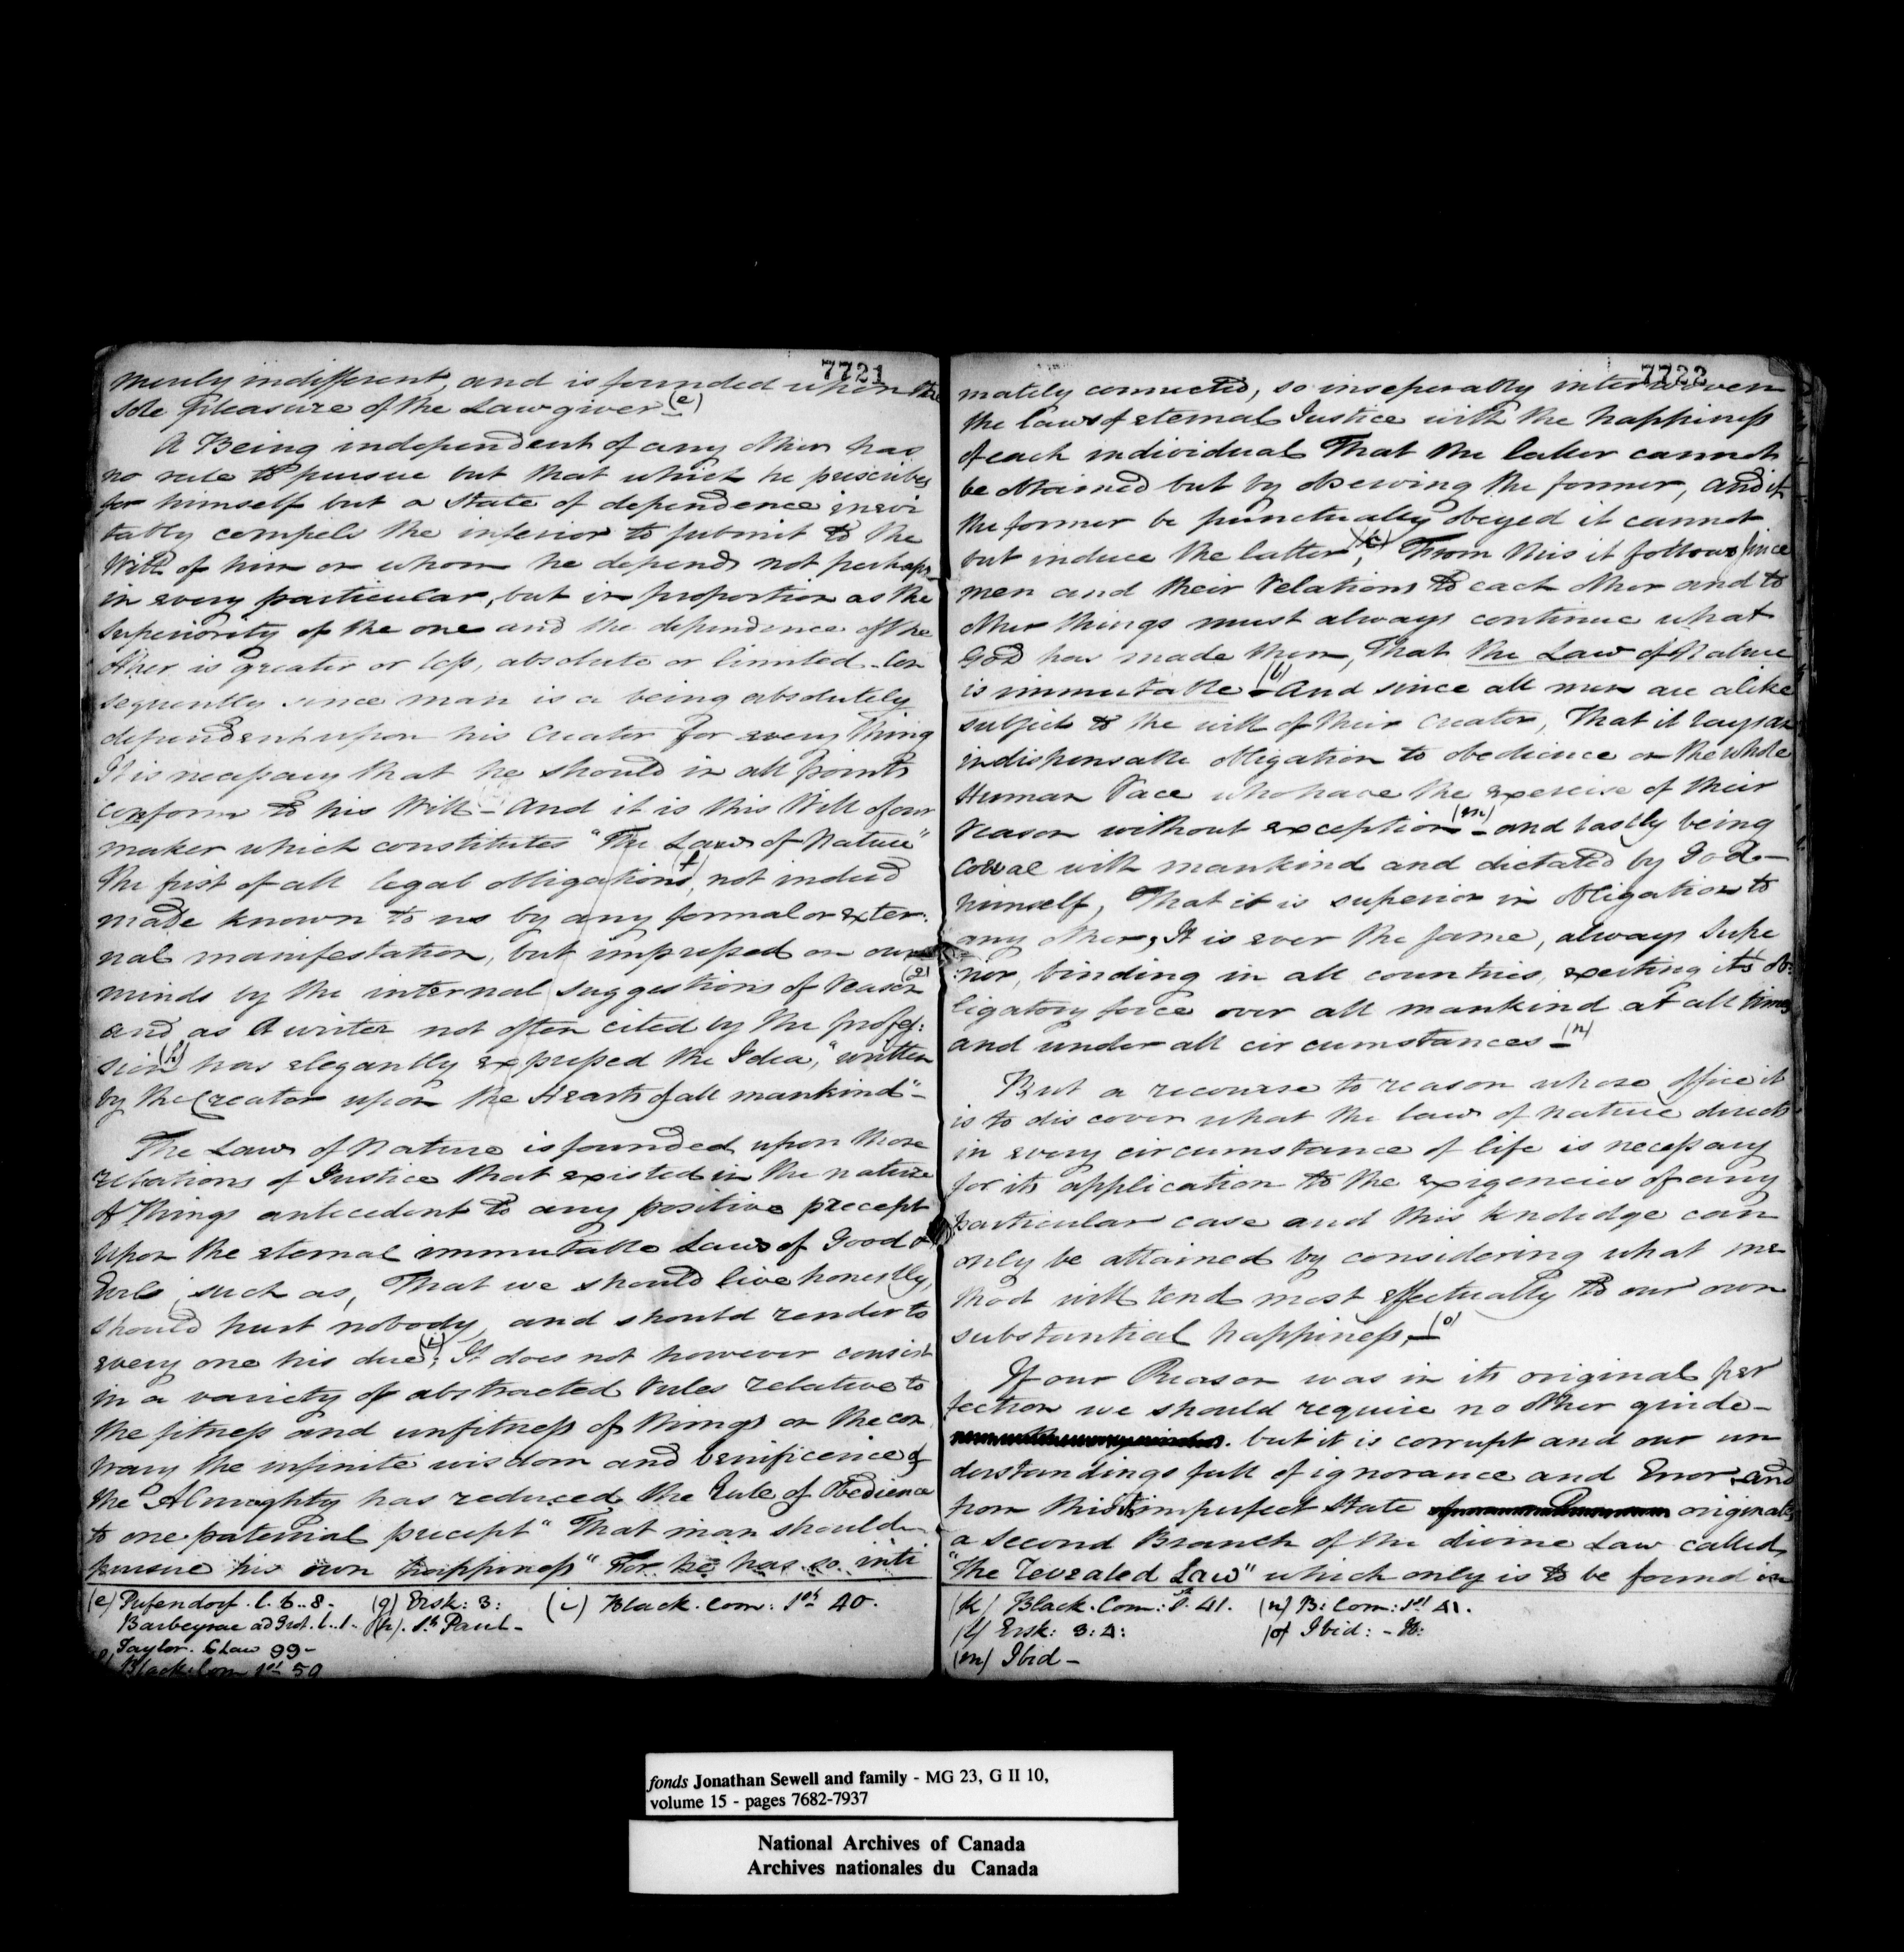 7721
merely indifferent, and is founded upon the
sole pleasure of the Law giver (e)
A Being independent of any other has
no rule to pursue but that which he prescribes
for himself but a State of dependence inevi
tably compels the inferior to submit to the
Will of him on whom he depends not perhaps
in every particular, but in proportion as the
superiority of the one and the dependence of the
other is greater or less, absolute or limited. Con
sequently since man is a being absolutely
dependent upon his Creator for every thing
It is necessary that he should in all points
conform to his Will - And it is this Will of our
maker which constitutes "The Laws of Nature"
the first of all legal obligations (f), not indeed
made known to us by any formal or exter:
nal manifestation, but impressed on our
minds by the internal suggestions of Reason (g)
and as a writer not often cited by the profes:
sion (h) has elegantly expressed the Idea, "written
by the Creator upon the Hearts of all mankind" -
The Laws of Nature is founded upon those
relations of Justice that existed in the nature
of things antecedent to any positive precept
upon the eternal immutable Laws of Good &
Evil; such as, That we should live honestly,
should hurt nobody, and should render to
every one his due (i); It does not however consist
in a variety of abstracted rules relative to
the fitness and unfitness of things on the con
trary the infinite wisdom and benificence of
the Almighty has reduced the Rule of Obedience
to one paternal precept "That man should
pursue his own happiness" For he has so inti
(e) Pufendorf. l. 6.. 8 -
Barbeyrac ad Grot. l.. 1 -
Taylor. C Law 99 -
Black. Com 1st 50
(g) Ersk: 3:
(h). St. Paul -
(i) Black. Com: 1st 40.
7722
mately connected, so inseperably interwoven
the laws of eternal Justice with the happiness
of each individual That the latter cannot
be obtained but by observing the former, and if
the former be punctually obeyed it cannot
but induce the latter, From this it follows since
men and their relations to each other and to
other things must always continue what
God has made them, That the Law of Nature
is immutable (l) - And since all men are alike
subject to the will of their Creator, That it lays an
indispensable obligation to obedience on the whole
Human Race who have the exercise of their
reason without exception (m) - and lastly being
coeval with mankind and dictated by God -
himself, That it is superior in obligation to
any other, It is ever the same, always supe
rior, binding in all countries, exerting its ob:
ligatory force over all mankind at all times
and under all circumstances - (n)
But a recourse to reason whose office it
is to discover what the law of nature directs
in every circumstance of life is necessary
for its application to the exigencies of any
particular case and this knoledge can
only be attained by considering what me
thod will tend most effectually to our own
substantial happiness, - (o)
If our Reason was in its original per
fection we should require no other guide -
but it is corrupt and our un
derstandings full of ignorance and Error, and
from this imperfect State originates
a second Branch of the divine Law called
"the revealed Law" which only is to be found in
(k) Black. Com: 1st. 41.
(l) Ersk: 3: 4:
(m) Ibid -
(n) B: Com: 1st 41.
(o) Ibid: - Ib:
fonds Jonathan Sewell and family - MG 23, G II 10,
volume 15 - pages 7682-7937
National Archives of Canada
Archives nationales du Canada